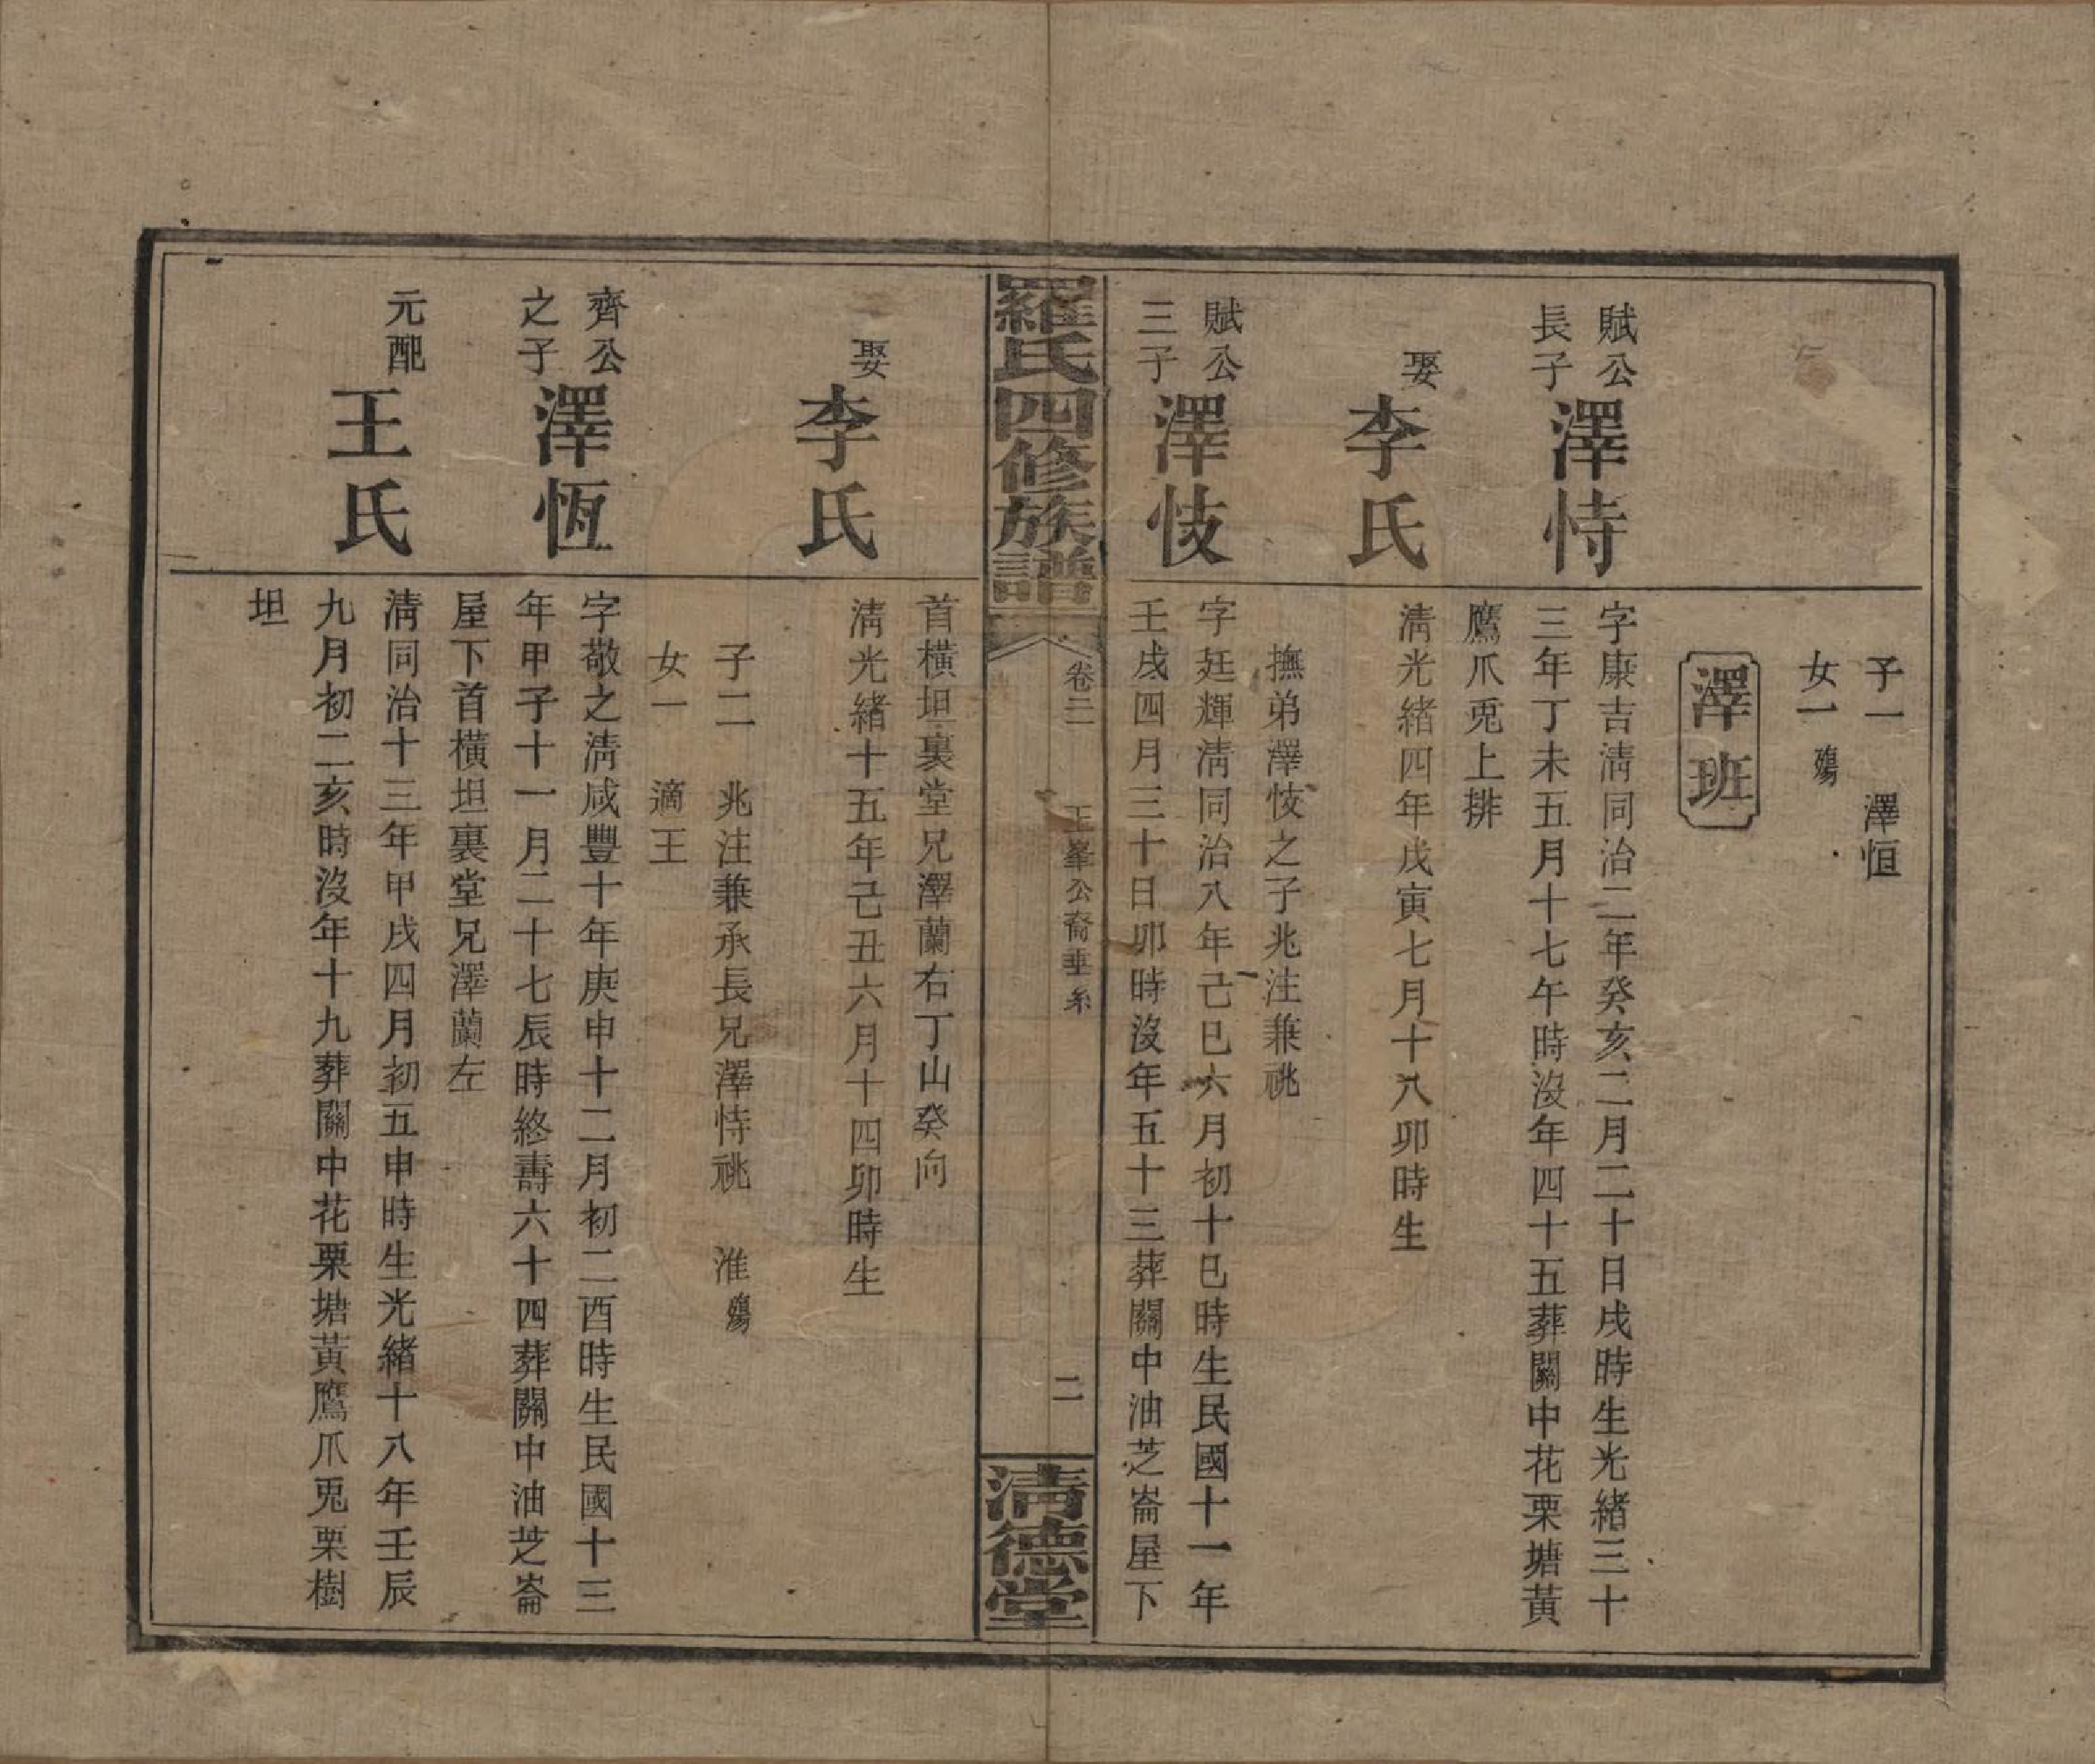 子一　澤恒
女一　殤
澤班
賦公
長子
澤恃
字康吉淸同治二年癸亥二月二十日戌時生光緒三十
三年丁未五月十七午時沒年四十五葬關中花栗塘黃
鷹爪兎上排
娶
李氏
淸光緒四年戊寅七月十八卯時生
撫弟澤忮之子兆注兼祧
賦公
三子
澤忮
字廷輝淸同治八年己巳六月初十巳時生民國十一年
壬戌四月三十日卯時沒年五十三葬關中油芝崙屋下
羅氏四修族譜
卷三
公裔垂系
二
淸德堂
首橫坦裏堂兄澤蘭右丁山癸向
娶
李氏
淸光緒十五年己丑六月十四卯時生
子二　兆注兼承長兄澤恃祧　淮殤
女一　適王
齊公
之子
澤恆
字敬之淸咸豐十年庚申十二月初二酉時生民國十三
年甲子十一月二十七辰時終壽六十四葬關中油芝崙
屋下首橫坦裏堂兄澤蘭左
元配
王氏
淸同治十三年甲戌四月初五申時生光緒十八年壬辰
九月初二亥時沒年十九葬關中花栗塘黃鷹爪兎栗樹
坦